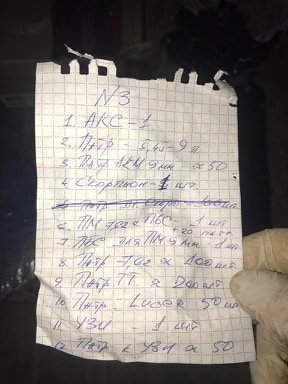 N3
1. АКС - 1
2. Патр - 5,45 - 9 п
3. Патр 9мм ≈ 50
4. Скорпион - 1 шт.
6. ПМ с ПБС - 1 шт
7. ПБС для ПМ 9мм - 1 шт
8. Патр - 7,62 ≈ 100 шт
9. Патр ТТ ≈ 200 шт
10. Патр. Luger 50 шт
11. УЗИ - 1 шт
12. Патр к УЗИ ≈ 50